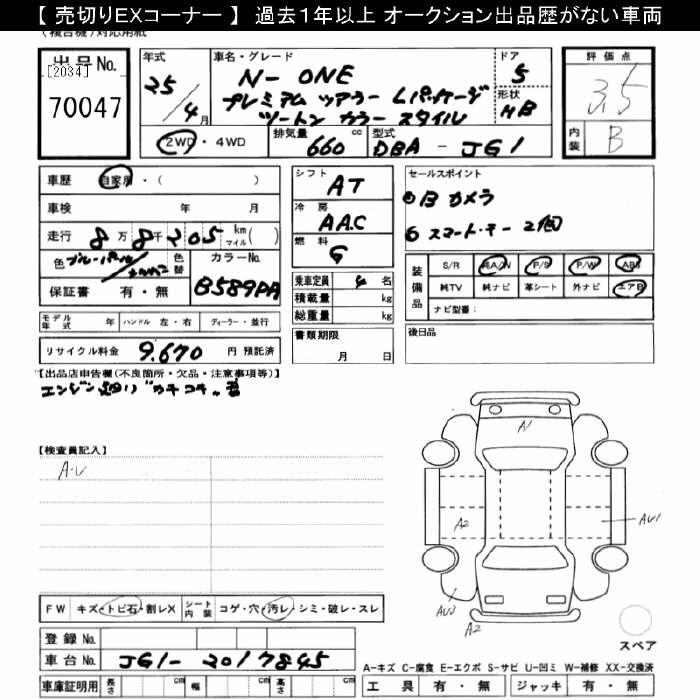 【 売切りEXコーナー 】 過去1年以上 オークション出品歴がない車両
(複合機)対応用紙
出品No.
[2034]
70047
年式
25/4月
車名・グレード
N-ONE
プレミアム ツアラー Lパッケージ
ツートン カラー スタイル
ドア
5
形状
HB
評価点
3.5
内装
B
2WD・4WD
排気量
660 cc
型式
DBA-JG1
車歴 自家用・( )
車検 年 月
走行 8万8千205 km マイル( )
色 ブルーパール/
色替
カラーNo.
B589PA
保証書 有・無
シフト
AT
冷房
AAC
燃料
G
乗車定員 4名
積載量 kg
総重量 kg
書類期限
月 日
セールスポイント
Bカメラ
スマートキー 2個
装備品
S/R 純A/W P/S P/W ABS
純TV 純ナビ 革シート 外ナビ エアB
ナビ型番:
後日品
モデル年式 年 ハンドル 左・右 ディーラー・並行
リサイクル料金 9,670 円 預託済
【出品店申告欄(不良箇所・欠品・注意事項等)】
エンジン廻り "カチコチ"音
【検査員記入】
A・U
A1
A2
AU1
A2
FW キズ・トビ石・割レX シート内装 コゲ・穴・汚レ・シミ・破レ・スレ
登録No.
車台No. JG1-2017845
車庫証明用 長さ cm 幅 cm 高さ cm
スペア
A-キズ C-腐食 E-エクボ S-サビ U-凹ミ W-補修 XX-交換済
工具 有・無 ジャッキ 有・無